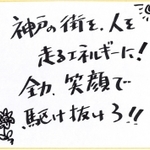 神戸の街を、人を
走るエネルギーに!
全力、笑顔で
駆け抜けろ!!